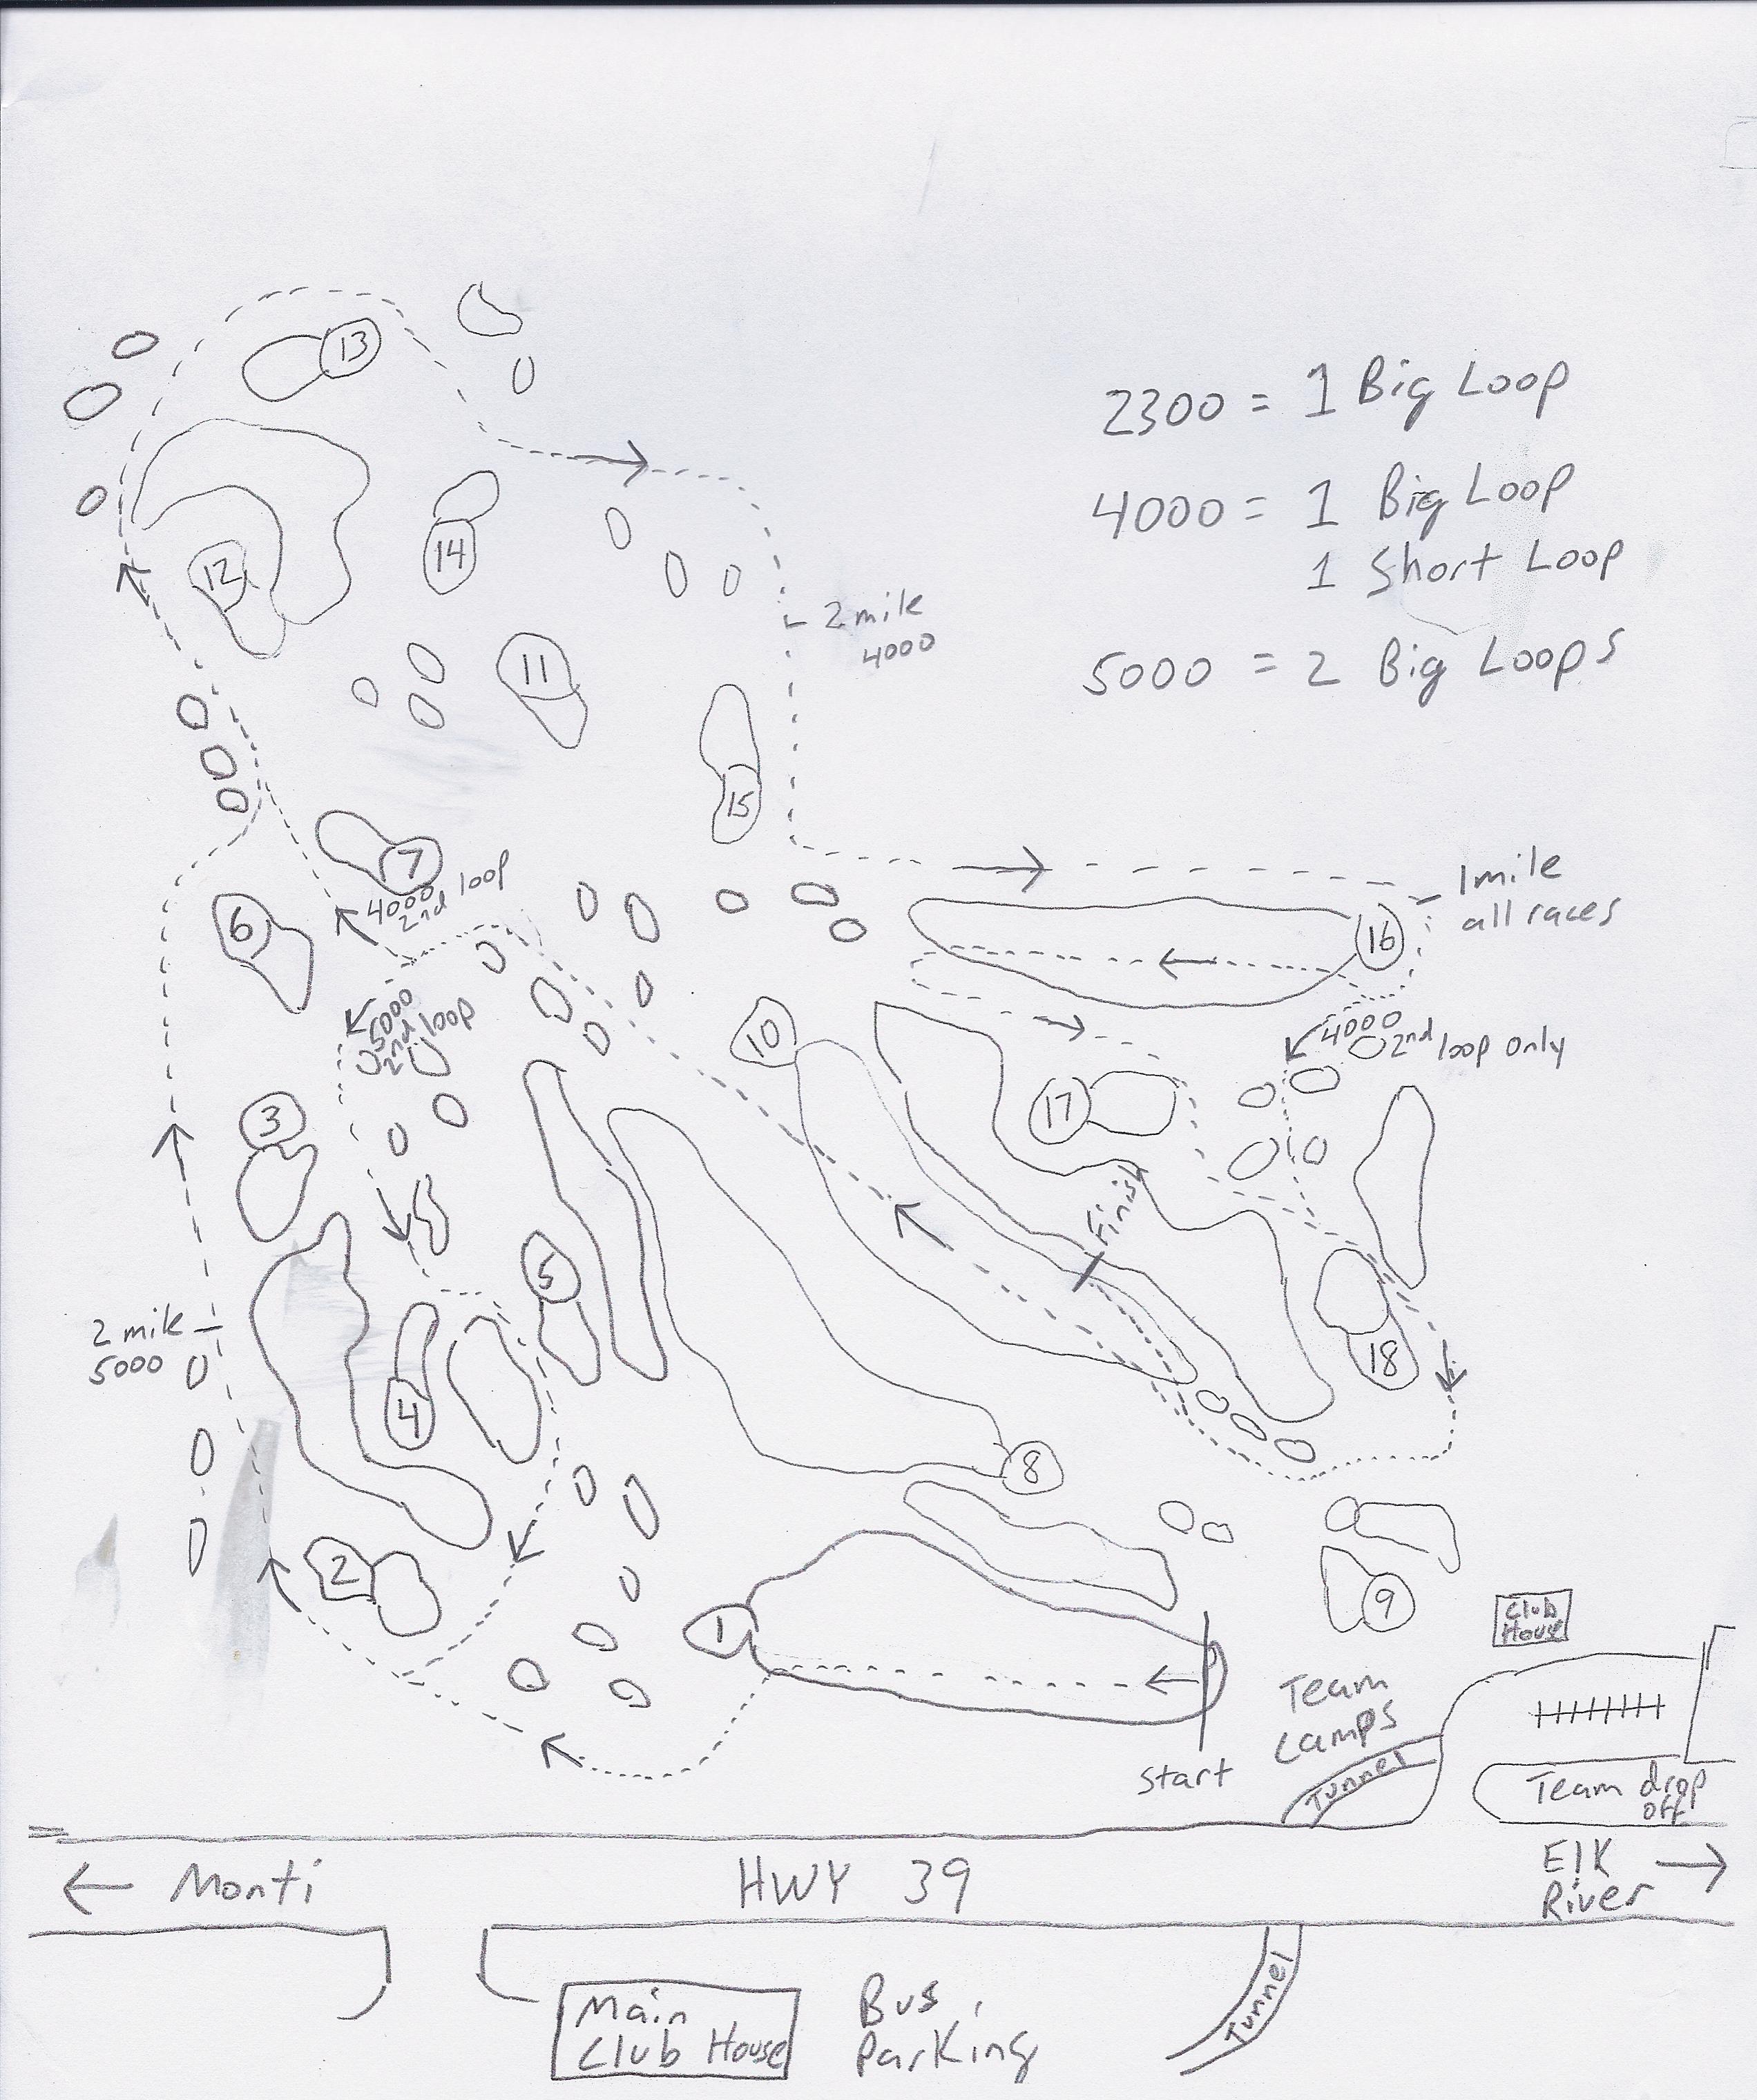 13
2300 = 1 Big Loop
4000 = 1 Big Loop
1 Short Loop
5000 = 2 Big Loops
12
14
11
2 mile
4000
15
7
4000
2nd loop
6
1 mile
all races
16
5000
2nd loop
10
4000
2nd loop only
17
3
Finish
5
2 mile
5000
4
18
8
2
1
9
Club
House
Team
Camps
Start
Tunnel
Team drop
off
← Monti
HWY 39
Elk →
River
Main
Club House
Bus
Parking
Tunnel